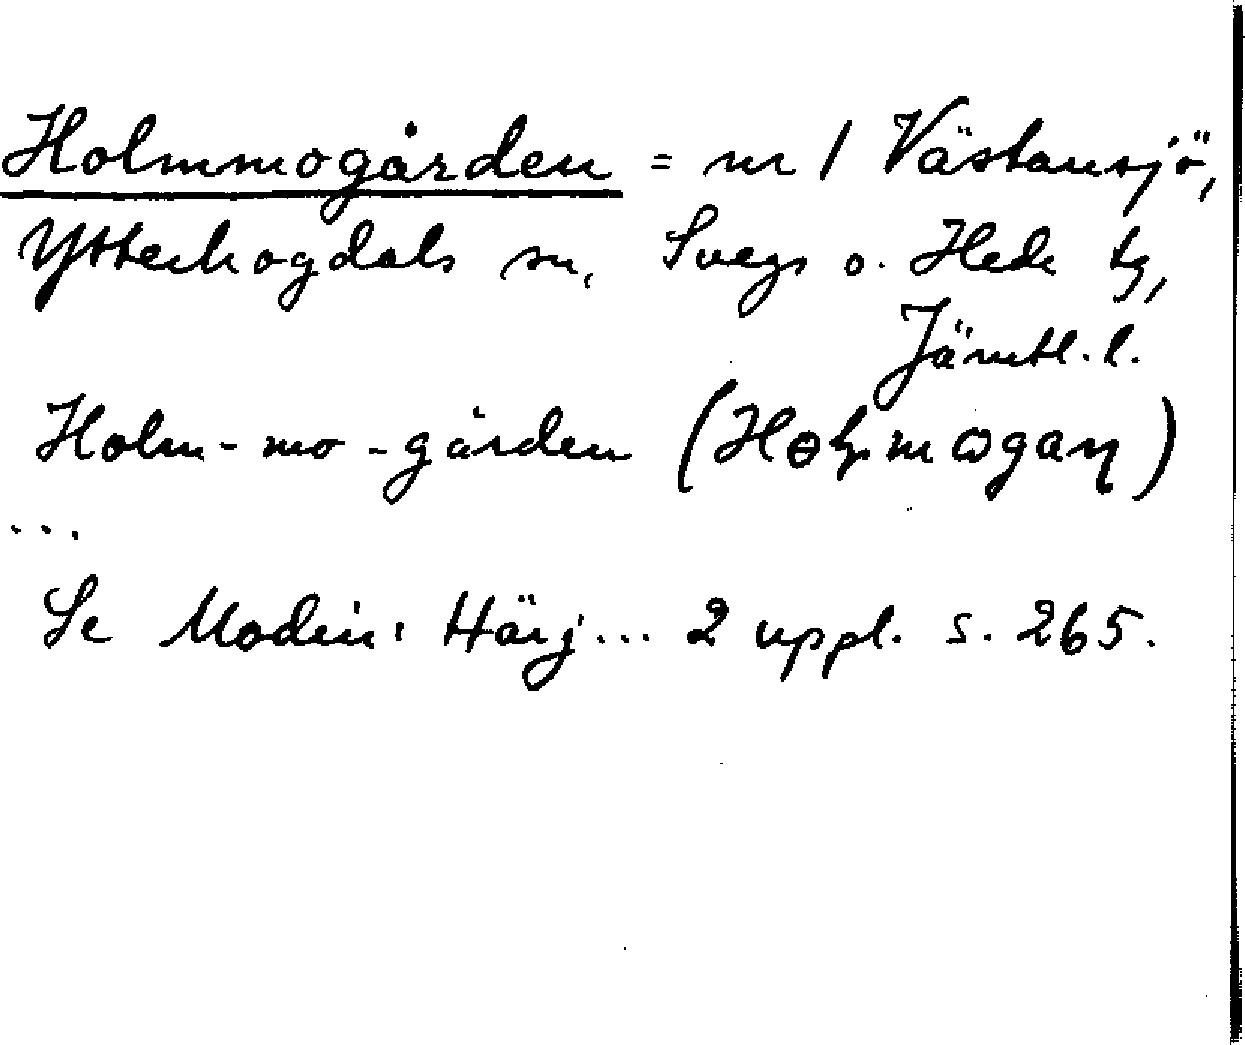 Holmmogården = nr 1 Västansjö,
Ytterhogdals sn, Svegs o. Hede tg,
Jämtl. l.
Holm-mo-gården (Hoɫmωgaɳ)
...
Se Modin: Härj... 2 uppl. s. 265.